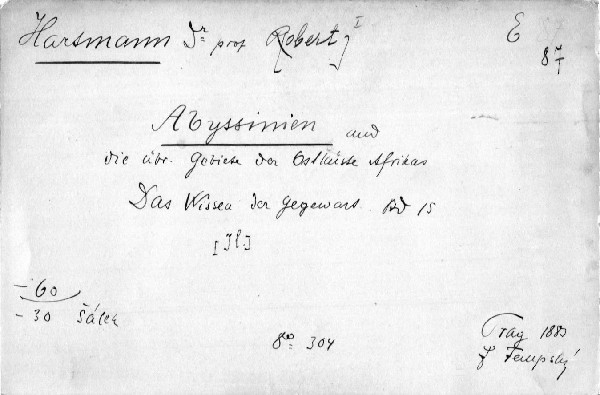 Hartmann Dr prof [Robert] I
E
87
Abyssinien und
die übr. Gebiete der Ostküste Afrikas
Das Wissen der Gegenwart. Bd 15
[Il]
- 60
- 30 Šálek
8° 304
Prag 1883
F Tempský